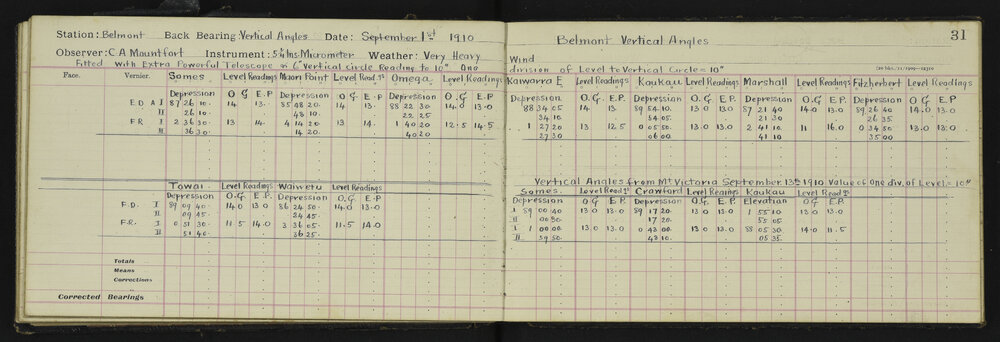 Station: Belmont Back Bearing Vertical Angles Date: September 1st 1910
Observer: C A Mountfort Instrument: 5¼ Ins. Micrometer Weather: Very Heavy
Fitted with Extra Powerful Telescope & 6" Vertical Circle Reading to 10" One
Face. Vernier. Somes Level Readings Maori Point Level Readgs Omega Level Readings
Depression O G E.P. Depression O G E.P Depression O.G E.P
F.D. A I 87 26 10. 14 13. 85 48 20. 14 13. 88 22 30 14.0 13.0
II 26 10. 48 10. 22 25
F.R I 2 36 30 13 14. 4 14 20 13 14. 1 40 20 12.5 14.5
II 36 30. 14 20. 40 20
Towai Level Readings Waiwetu Level Readings
Depression O.G E.P. Depression O.G E.P.
F.D. I 89 09 40. 14.0 13.0 86 24 50. 14.0 13.0
II 09 45. 24 45.
F.R. I 0 51 30. 11.5 14.0 3 36 05. 11.5 14.0
II 51 40. 36 25.
Totals
Means
Corrections
Corrected Bearings
Belmont Vertical Angles 31
Wind
division of Level to Vertical Circle = 10"
Kaiwarra E Level Readings Kaukau Level Readings Marshall Level Readings Fitzherbert Level Readings
Depression O.G. E.P. Depression O.G E.P. Depression O.G E.P. Depression O.G E.P.
88 34 05 14 13 89 54 10. 13.0 13.0 87 21 40 14.0 13.0 89 26 40 14.0 13.0
34 10. 54 05. 21 30 26 35
1 27 20 13 12.5 0 05 50 13.0 13.0 2 41 10 11 16.0 0 34 50 13.0 13.0
27 30 06 00 41 10 35 00
Vertical Angles from Mt Victoria September 13th 1910 Value of One div. of Level = 10"
Somes Level Readgs Crawford Level Readings Kaukau Level Readgs
Depression O G E.P. Depression O.G E.P. Elevation O.G E.P.
I 89 00 40 13.0 13.0 89 17 20 13.0 13.0 1 55 10 13.0 13.0
II 00 30 17 20. 55 05
I 1 00 00 13.0 13.0 0 43 00. 13.0 13.0 88 05 30 14.0 11.5
II 59 50 43 10. 05 35.